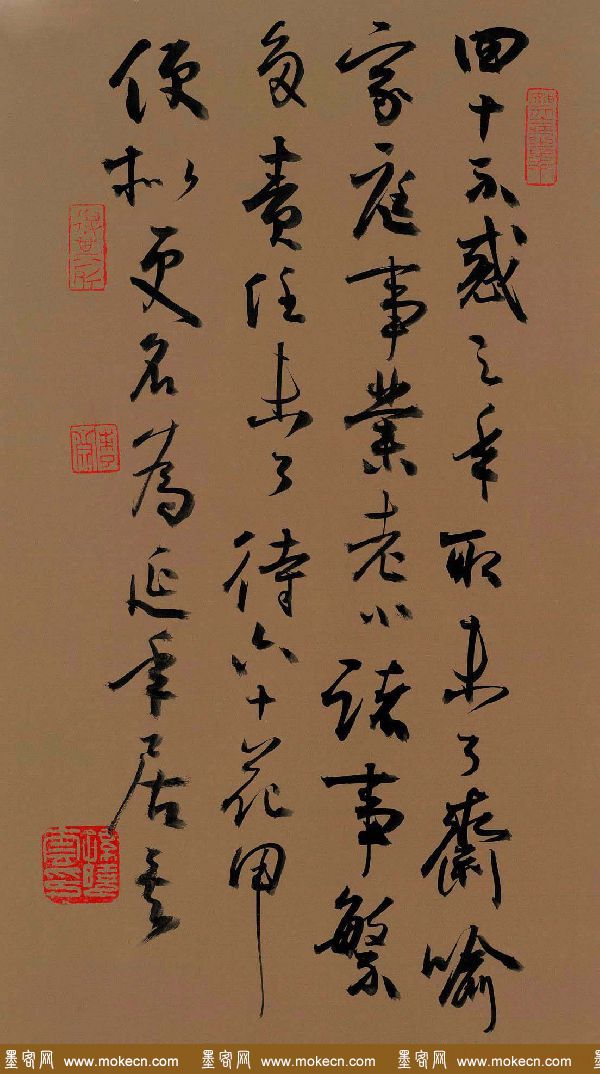 四十不惑之年取未了斋喻
家庭事業老小諸事繁
多責任未了待六十花甲
便拟更名為延年居矣
墨客网 www.mokecn.com 墨客网 www.mokecn.com 墨客网 www.mokecn.com